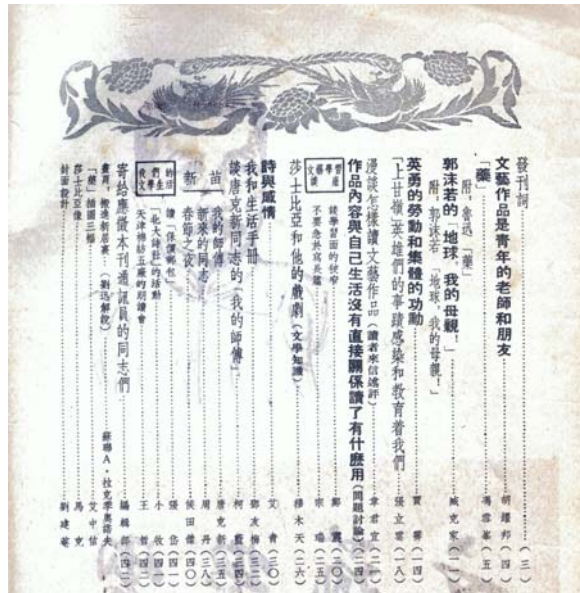 發刊詞……(三)
文藝作品是青年的老師和朋友……胡耀邦(四)
「藥」……馮雪峯(五)
附：魯迅「藥」
郭沫若的「地球，我的母親！」……臧克家(一一)
附：郭沫若「地球，我的母親！」
英勇的勞動和集體的功勳……賈霽(一四)
「上甘嶺」英雄們的事蹟感染和教育着我們……張立雲(一八)
漫談怎樣讀文藝作品(讀者來信述評)……韋君宜(二一)
作品內容與自己生活沒有直接關係讀了有什麼用(問題討論)(二四)
談學習面的使窄……(二〇)
不要急於寫長篇……(二五)
莎士比亞和他的戲劇(文學知識)……穆木天(二六)
詩與感情……艾青(三〇)
我和生活手冊……鄧友梅(三二)
談唐克新同志的「我的師傅」……柯藍(三四)
新苗
我的師傅……唐克新(三五)
新來的同志……周丹(三八)
春節之夜……侯田傑(四〇)
我們的文學生活
讀「保價郵包」……張岱(四一)
「北大詩社」的活動……小牧(四一)
天津棉紡五廠的朗讀會……王哲(四二)
寄給應徵本刊通訊員的同志們……編輯部(四二)
畫頁：搬進新居裏(劉迅解說)……蘇聯A·拉克季奧諾夫
「藥」插圖三幅……艾中信
莎士比亞像……馬克
封面設計……劉建菴